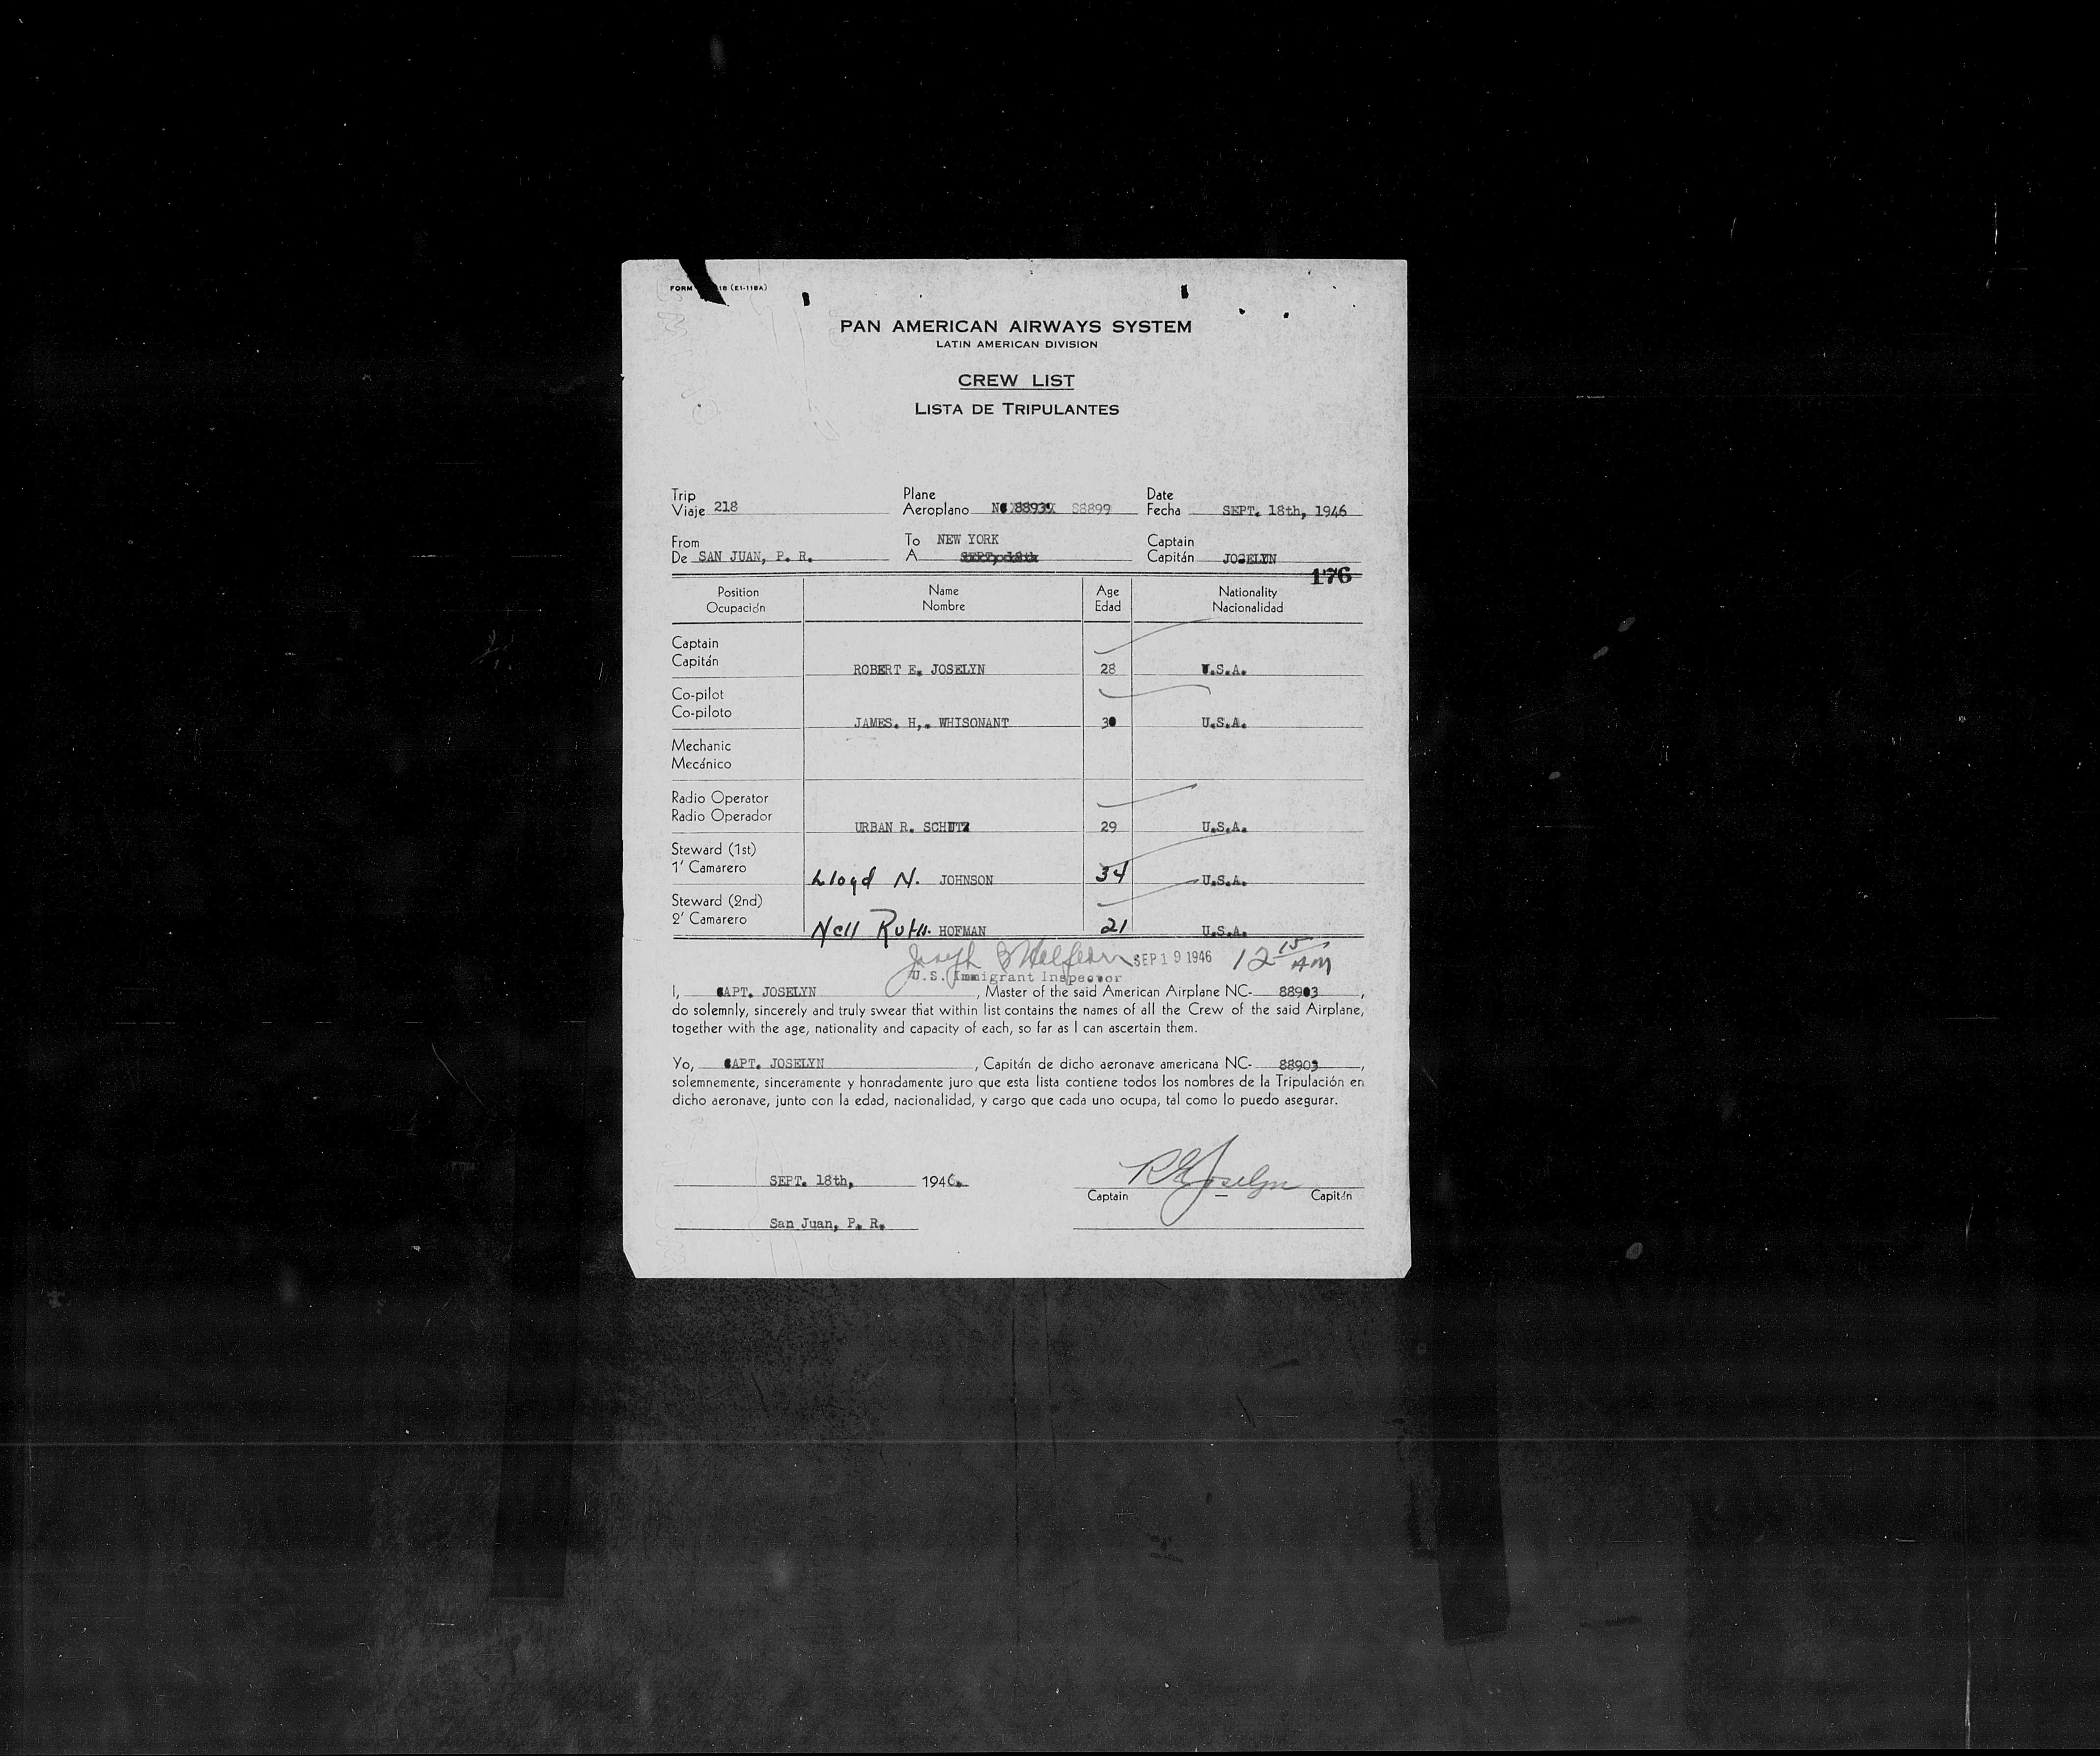 FORM 18 (E1-118A)
PAN AMERICAN AIRWAYS SYSTEM
LATIN AMERICAN DIVISION
CREW LIST
LISTA DE TRIPULANTES
Trip Plane Date
Viaje 218 Aeroplano NC 88939 88899 Fecha SEPT. 18th, 1946
From To NEW YORK Captain
De SAN JUAN, P. R. A SEPT, 18th Capitán JOSELYN
176
Position Name Age Nationality
Ocupación Nombre Edad Nacionalidad
Captain
Capitán ROBERT E. JOSELYN 28 U.S.A.
Co-pilot
Co-piloto JAMES. H,. WHISONANT 30 U.S.A.
Mechanic
Mecánico
Radio Operator
Radio Operador URBAN R. SCHUTZ 29 U.S.A.
Steward (1st)
1' Camarero Lloyd N. JOHNSON 34 U.S.A.
Steward (2nd)
2' Camarero Nell Ruth HOFMAN 21 U.S.A.
Joseph SEP 19 1946 12 15 AM
U.S. Immigrant Inspector
I, CAPT. JOSELYN , Master of the said American Airplane NC- 88903 ,
do solemnly, sincerely and truly swear that within list contains the names of all the Crew of the said Airplane,
together with the age, nationality and capacity of each, so far as I can ascertain them.
Yo, CAPT. JOSELYN , Capitán de dicho aeronave americana NC- 88903 ,
solemnemente, sinceramente y honradamente juro que esta lista contiene todos los nombres de la Tripulación en
dicho aeronave, junto con la edad, nacionalidad, y cargo que cada uno ocupa, tal como lo puedo asegurar.
SEPT. 18th, 1946. R E Joselyn
Captain Capitán
San Juan, P. R.